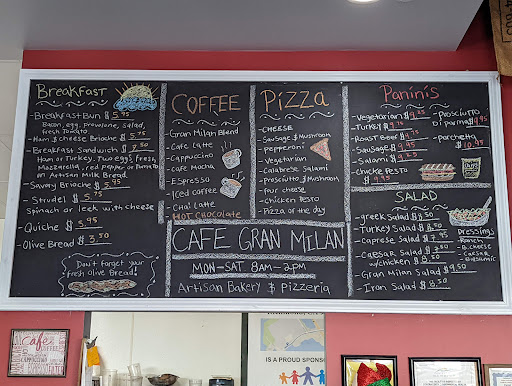 BreakfasT
- Breakfast Bun $5.95
Bacon, egg, provolone, salad,
fresh Tomato
- Ham & cheese Brioche $5.75
- Breakfast Sandwich $7.50
Ham or Turkey, Two eggs, fresh,
Mazzarella, red pepper or Tomato
on Artisan Milk Bread
- Savory Brioche $5.95
- Strudel $5.75
Spinach or leek with cheese
- Quiche $5.95
- Olive Bread $3.50
Don't forget your
fresh olive bread!
COFFEE
- Gran Milan Blend
- Cafe Latte
- Cappuccino
- Cafe Mocha
- Espresso
- Iced Coffee
- Chai Latte
- HOT CHOCOLATE
PizzA
- CHEESE
- Sausage & Mushroom
- Pepperoni
- Vegetarian
- Calabrese Salami
- Prosciutto & Mushroom
- Four cheese
- Chicken Pesto
- Pizza of the day
CAFE GRAN MILAN
MON-SAT 8AM-2PM
Artisan Bakery & Pizzeria
Paninis
- Vegetarian $9.25
- Turkey $9.75
- Roast Beef $9.75
- Sausage $9.95
- Salami $9.25
- Chicke Pesto
$9.95
- Prosciutto
di parma $9.95
- Porchetta
$10.95
SALAD
- greek Salad $7.50
- Turkey Salad $8.50
- Caprese Salad $7.95
- Caesar Salad $7.50
w/chicken $8.50
- Gran Milan Salad $9.50
- Iran Salad $8.50
DRESSINGS
- Ranch
- B. Cheese
- Caesar
- Balsamic
Cafe
COFFEE
IS A PROUD SPONS